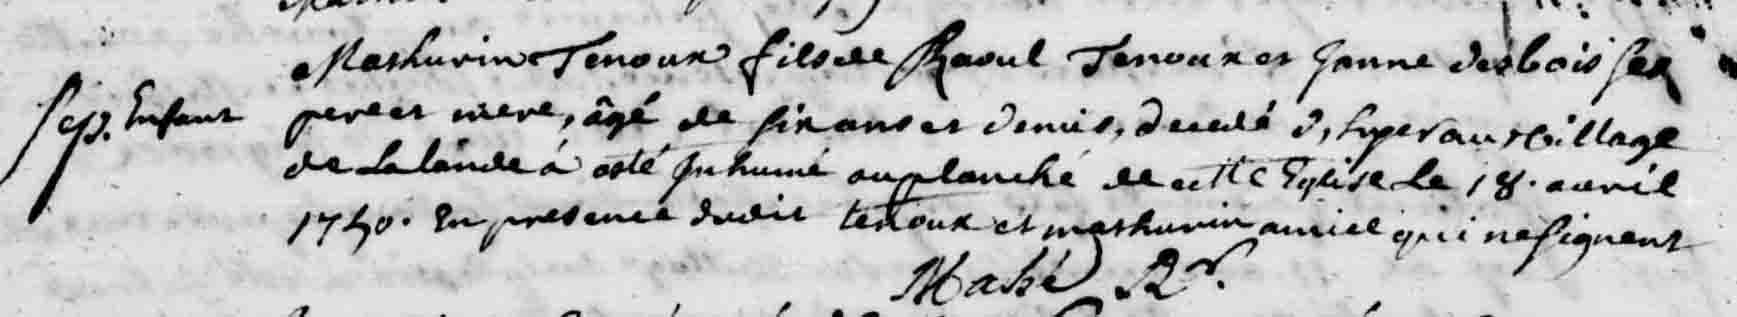 Mathurin Tenoux fils de Raoul Tenoux et Janne desbois ses
Sep. Enfant
pere et mere, âgé de six ans et demis, decedé d'hyer au village
de Lalande á esté Inhumé au planché de cette Eglise Le 18. avril
1740. En presence dudit tenoux et mathurin amice qui ne signent
Mahé Rr.